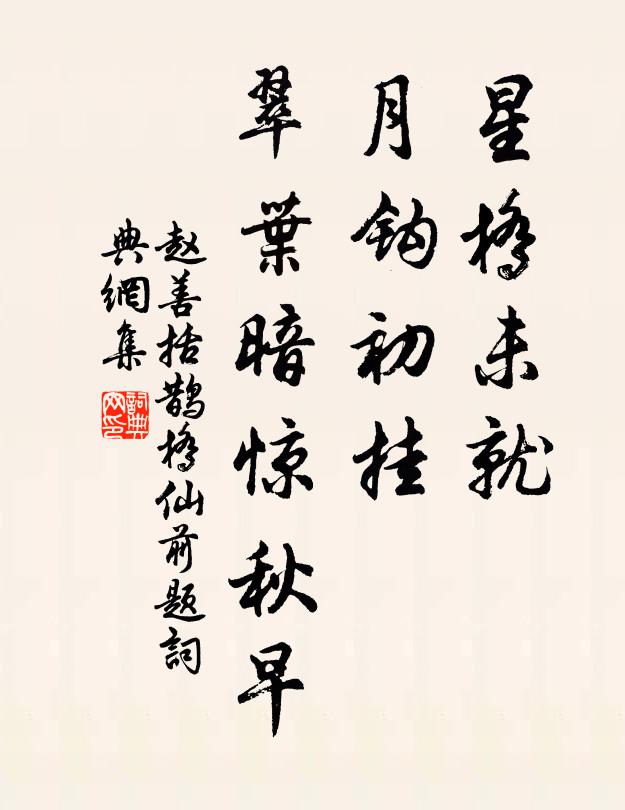 星橋未就
月鈎初挂
翠葉暗惊秋早
赵善括鹊橋仙前题詞
典網集
詞典
网印